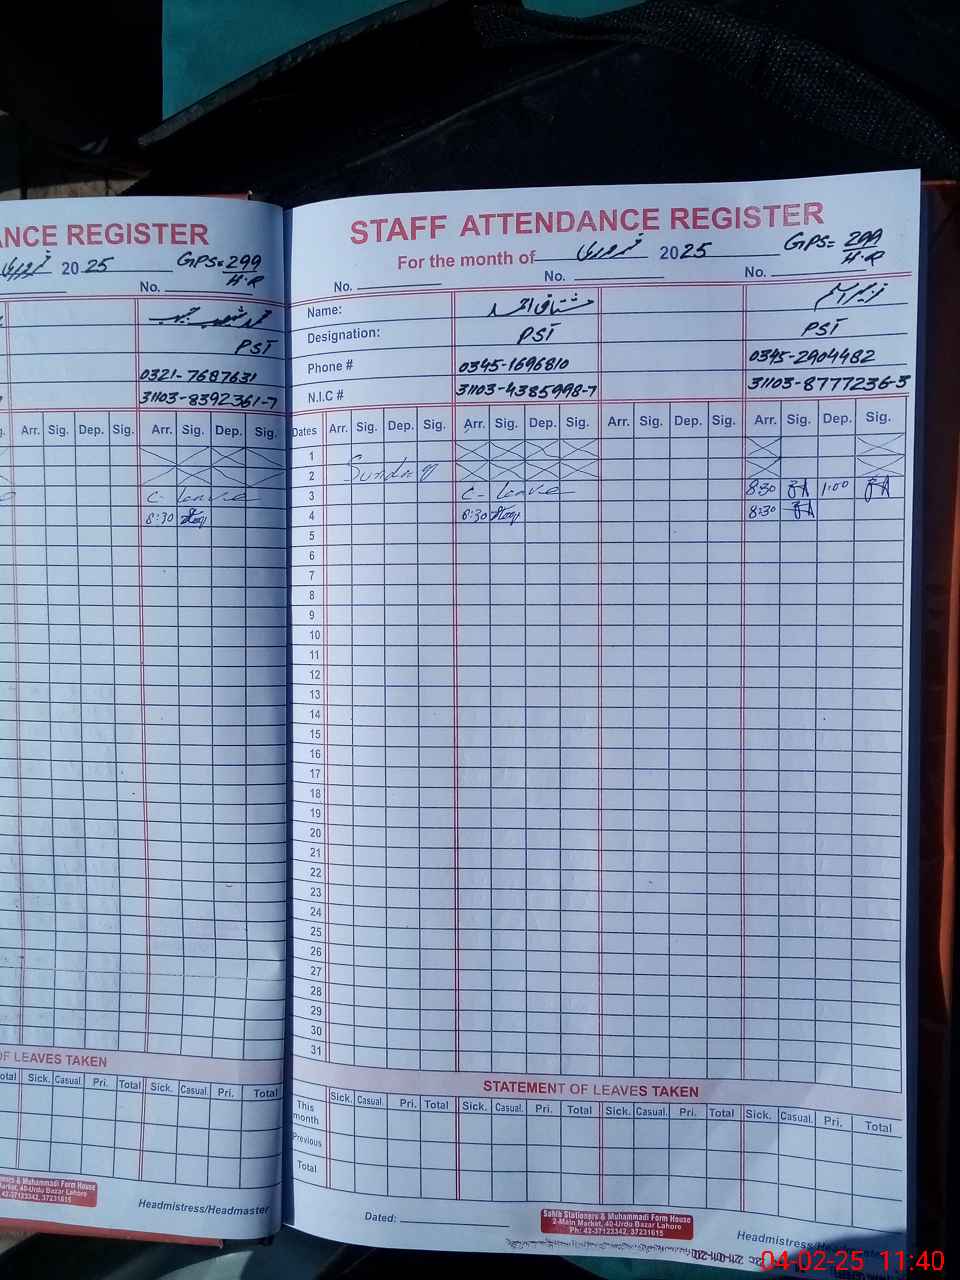 ANCE REGISTER
فروری 2025 GPS= 299
H.R
No.
PST
0321-7687631
31103-8392361-7
g. Arr. Sig. Dep. Sig. Arr. Sig. Dep. Sig.
C- Leave
8:30
OF LEAVES TAKEN
otal Sick. Casual Pri. Total Sick. Casual. Pri. Total
Headmistress/Headmaster
STAFF ATTENDANCE REGISTER
For the month of فروری 2025 GPS= 299
H.R
No. No. No.
Name: مشتاق احمد
Designation: PST PST
Phone # 0345-1696810 0345-2904482
N.I.C # 31103-4385998-7 31103-8777236-3
Dates Arr. Sig. Dep. Sig. Arr. Sig. Dep. Sig. Arr. Sig. Dep. Sig. Arr. Sig. Dep. Sig.
1
2 Sunday
3 C- Leave 8:30 1:00
4 8:30 8:30
5
6
7
8
9
10
11
12
13
14
15
16
17
18
19
20
21
22
23
24
25
26
27
28
29
30
31
STATEMENT OF LEAVES TAKEN
Sick. Casual. Pri. Total Sick. Casual. Pri. Total Sick. Casual. Pri. Total Sick. Casual. Pri. Total
This month
Previous
Total
Dated:
Sahib Stationers & Muhammadi Form House
2-Main Market, 40-Urdu Bazar Lahore
Ph: 42-37123342, 37231615
Headmistress/He
04-02-25 11:40